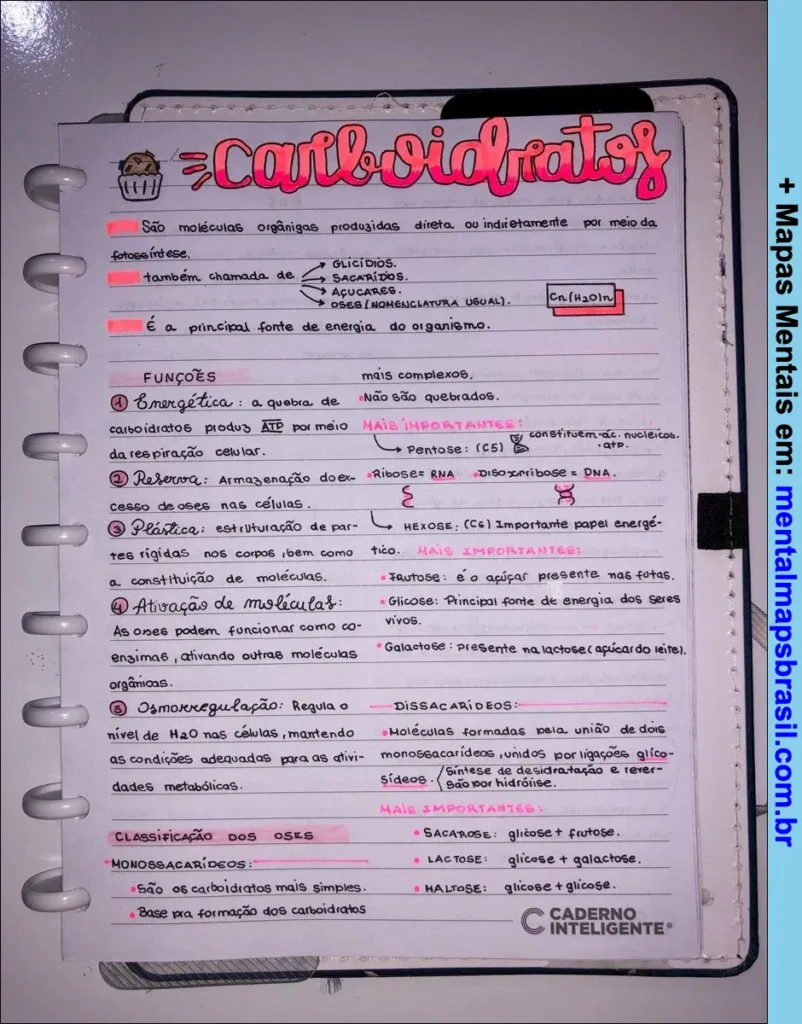 carboidratos
São moléculas orgânigas produzidas direta ou indiretamente por meio da
fotossíntese.
também chamada de
GLICÍDIOS.
SACARÍDOS.
AÇUCARES.
OSES (NOMENCLATURA USUAL).
Cn(H2O)n
É a principal fonte de energia do organismo.
FUNÇOES
1 Energética: a quebra de
carboidratos produz ATP por meio
da respiração celular.
2 Reserva: Armazenação do ex-
cesso de oses nas células.
3 Plástica: estruturação de par-
tes rígidas nos corpos, bem como
a constituição de moléculas.
4 Ativação de moléculas:
As oses podem funcionar como co-
enzimas, ativando outras moléculas
orgânicas.
5 Osmorregulação: Regula o
nível de H2O nas células, mantendo
as condições adequadas para as ativi-
dades metabólicas.
CLASSIFICAÇÃO DOS OSES
MONOSSACARÍDEOS:
São os carboidratos mais simples.
Base pra formação dos carboidratos
mais complexos.
Não são quebrados.
MAIS IMPORTANTES:
Pentose: (C5)
constituem ác. nucleicos.
atp.
Ribose = RNA
Disoxirribose = DNA.
HEXOSE: (C6) Importante papel energé-
tico. MAIS IMPORTANTES:
Frutose: é o açúçar presente nas futas.
Glicose: Principal fonte de energia dos seres
vivos.
Galactose: presente na lactose (açúcar do leite).
DISSACARÍDEOS:
Moléculas formadas pela união de dois
monossacarídeos, unidos por ligações glico-
sídeos.
Síntese de desidratação e rever-
são por hidrólise.
MAIS IMPORTANTES:
SACAROSE: glicose + frutose.
LACTOSE: glicose + galactose.
MALTOSE: glicose + glicose.
CADERNO
INTELIGENTE®
+ Mapas Mentais em: mentalmapsbrasil.com.br